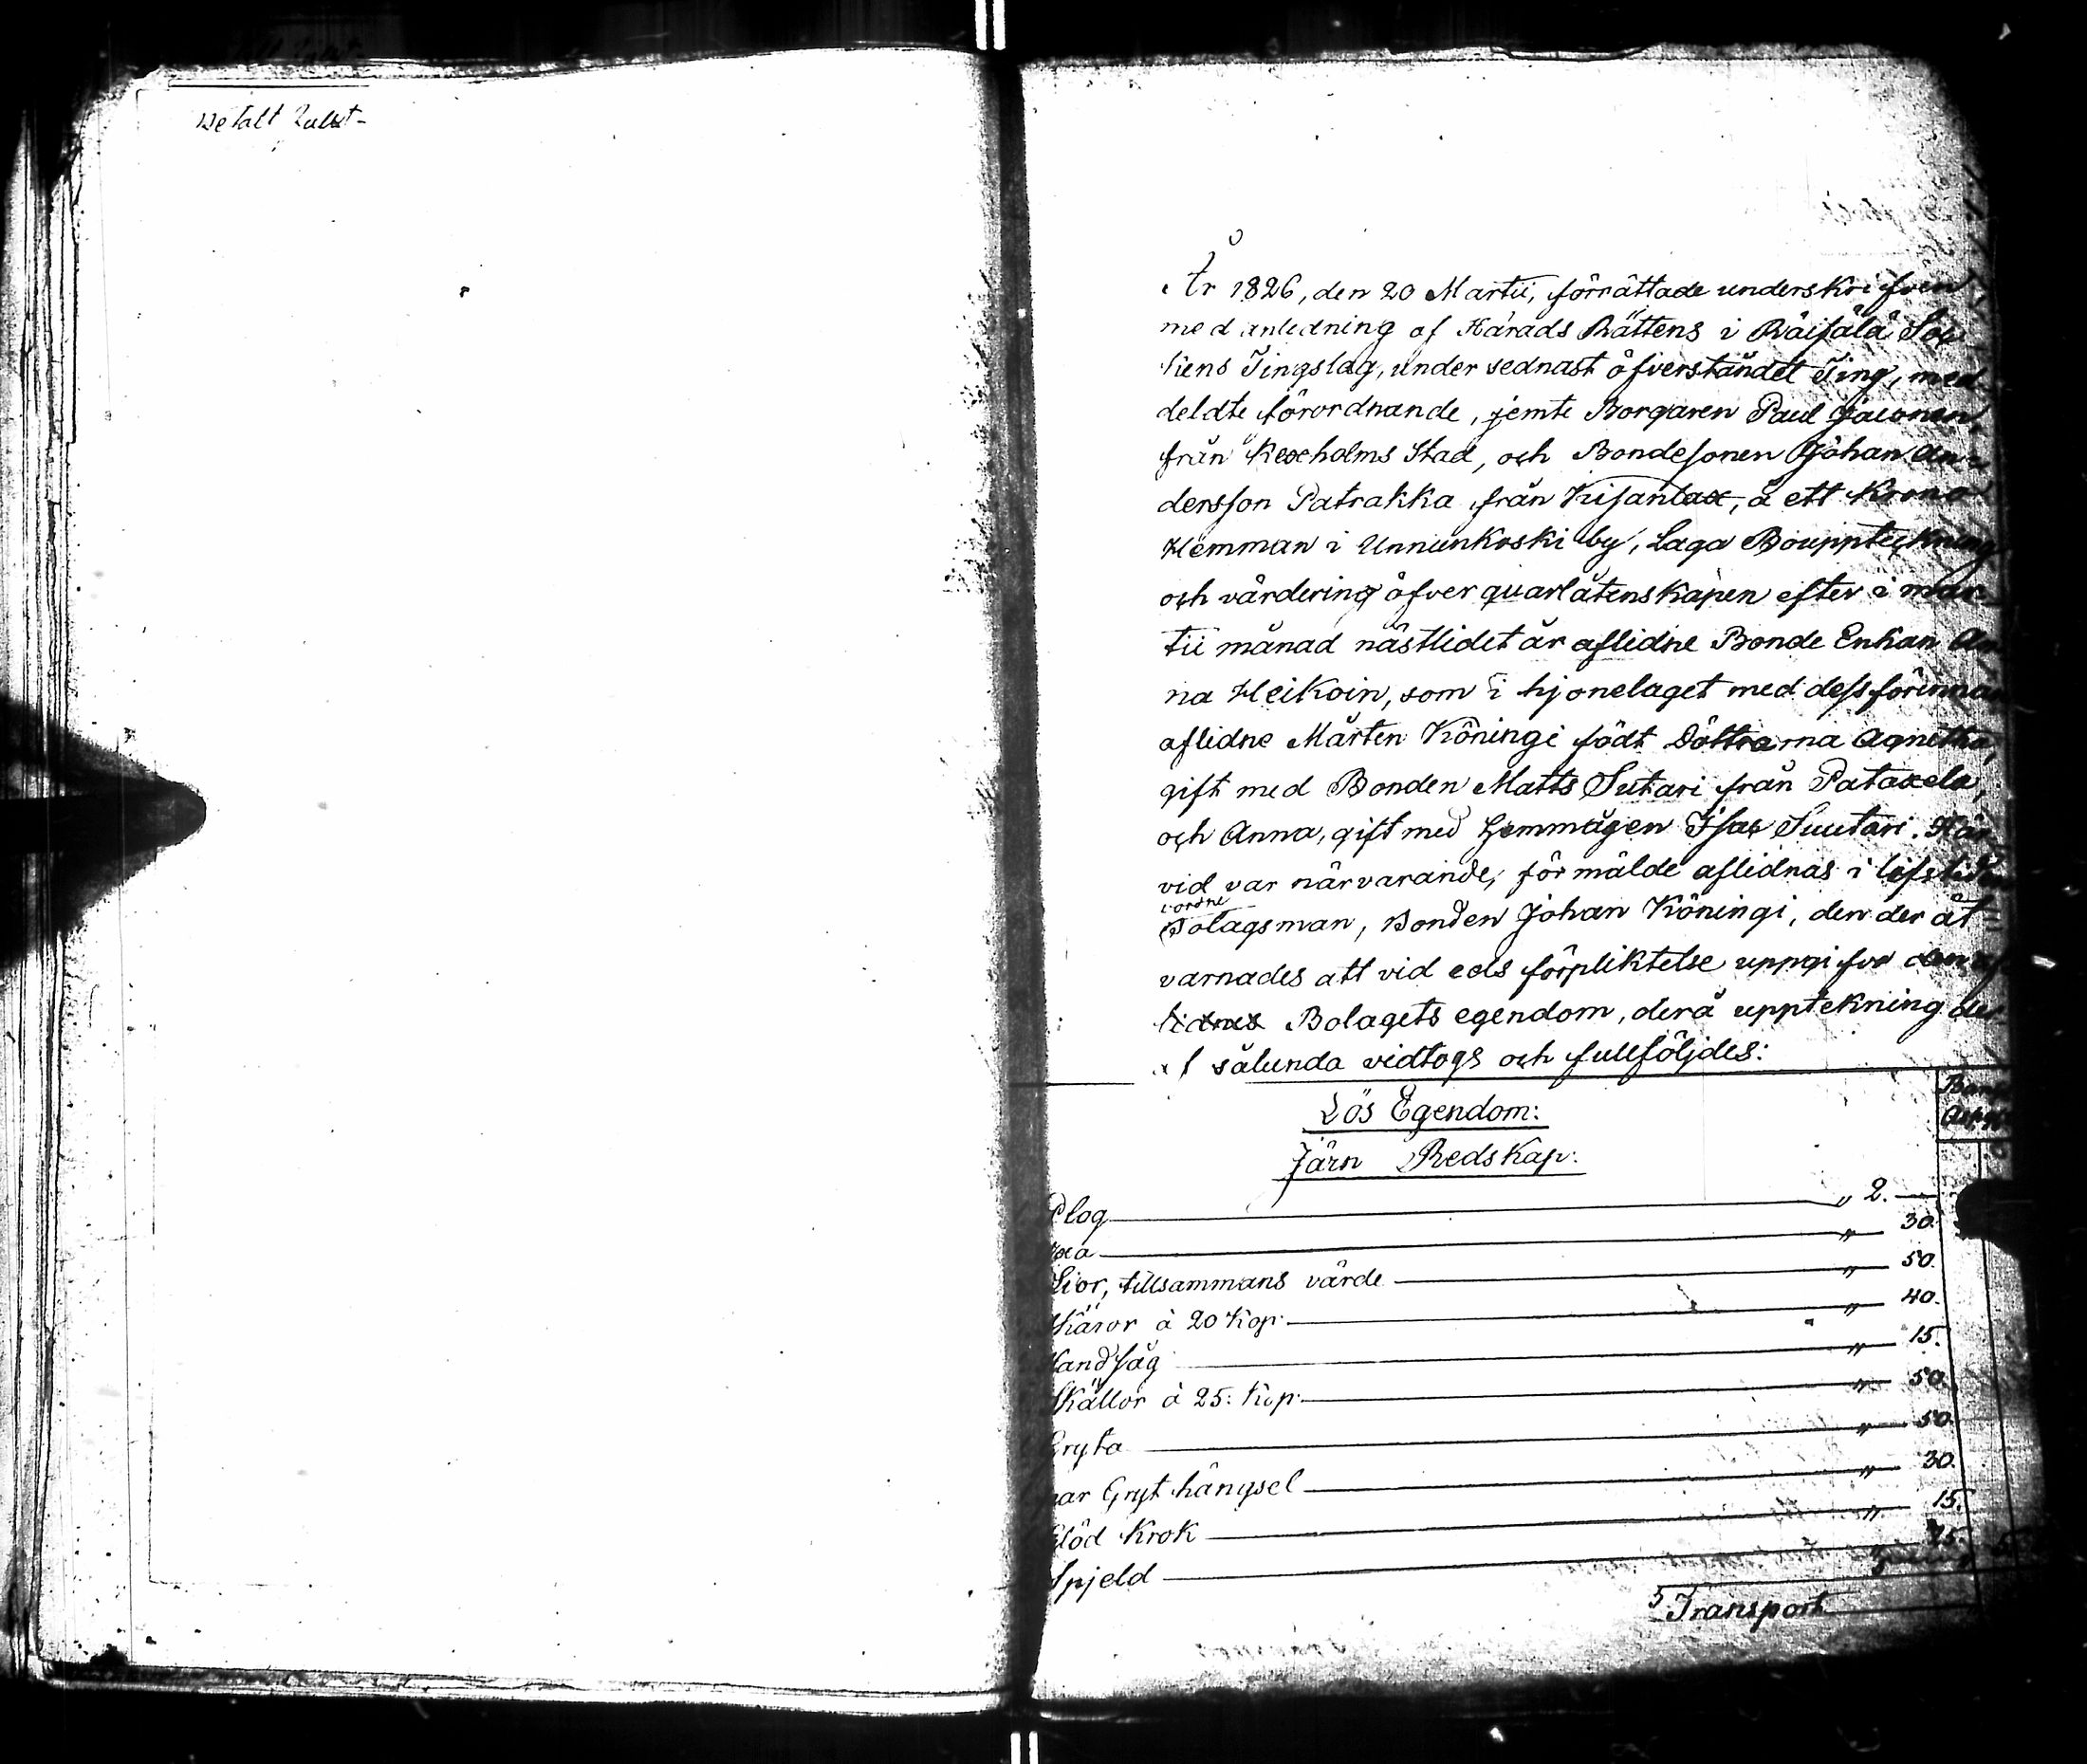 Betalt
År 1826, den 20 Martii, förrättade underskrifven
med anledning af Härads Rättens i Räisälä Soc
kens Tingslag, under sednast öfverståndet Ting, med
deldte förordnande, jemte Borgaren Paul
från Kexholms Stad, och Bondesonen Johan An=
dersson Patrakka från Kisanlax, å ett Krono
Hemman i Unnunkoski by, Laga Bouppteckning
och värdering öfver quarlåtenskapen efter i Mar=
tii månad nästlidet år aflidne Bonde Enkan An
na Heikoin, som i hjonelaget med dess förinnan
aflidne Mårten Köningi födt Döttrarna Agnetha,
gift med Bonden Matts Sutari från Pataxela,
och Anna, gift med Hemmägen Isac Suutari. Här
vid var närvarande, förmälde aflidnas i lifstiden
vordne
Bolagsman, Bonden Johan Köningi, den der åt
varnades att vid eds förpliktelse uppgifva den af
lidnes Bolagets egendom, derå upptekning der
af sålunda vidtogs och fullföljdes:
Lös Egendom:
Järn Redskap:
Plog " 2. —
" 30.
Lior, tillsammans värde " 50.
Skäror à 20 Kop: " 40.
Handsåg " 15.
Skällor à 25: Kop: " 50.
Gryta " 50.
par Gryt hängsel " 30.
Glöd Krok " 15.
Spjeld " 25.
Transport